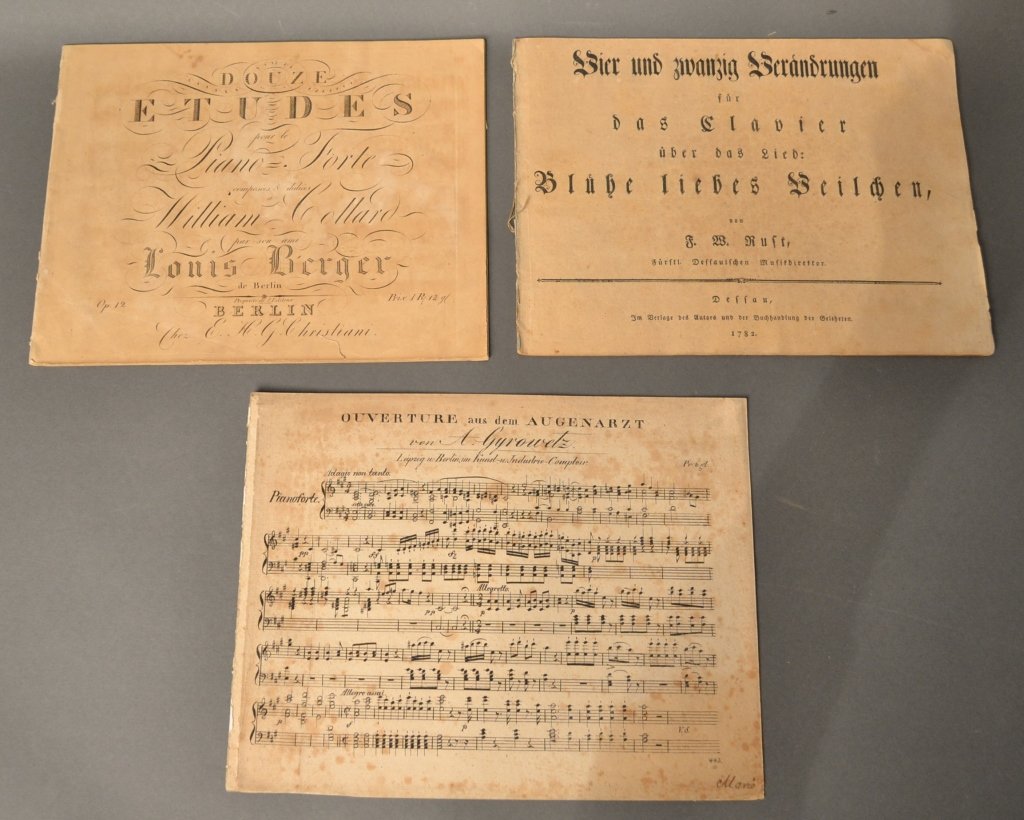 DOUZE
ETUDES
pour le
Piano-Forte
composées & dediées
William Collard
par son ami
Louis Berger
de Berlin
Op. 12
BERLIN
Chez E. H. G. Christiani.
Vier und zwanzig Verändrungen
für
das Clavier
über das Lied:
Blühe liebes Veilchen,
von
F. W. Rust,
Fürstl. Dessauischen Musikdirektor.
Dessau,
Im Verlage des Autors und der Buchhandlung der Gelehrten.
1782.
OUVERTURE aus dem AUGENARZT
von A. Gyrowetz.
Leipzig u. Berlin, im Kunst- u. Industrie-Comptoir.
Adagio non tanto.
Pianoforte.
pp
Allegretto.
pp p
Allegro assai
p p
V.S.